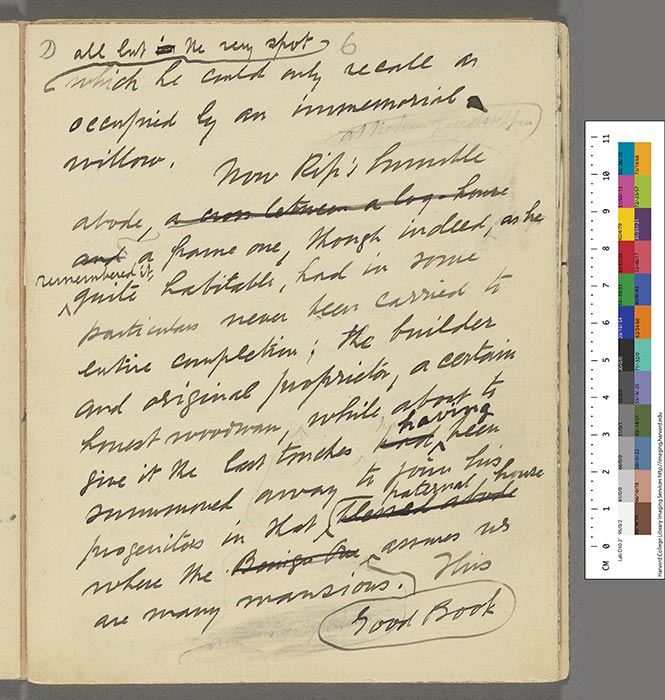 D all but in the very spot 6
which he could only recall as
occupied by an immemorial
willow. Now Rip's humble
abode, a cross between a log-house
and a frame one, though indeed, as he
remembered it,
quite habitable, had in some
particulars never been carried to
entire completion; the builder
and original proprietor, a certain
honest woodman, while about to
give it the last touches had having been
summoned away to join his
progenitors in that blessed abode paternal house
where the Benign One assures us
are many mansions. This
Good Book
CM 0 1 2 3 4 5 6 7 8 9 10 11
Harvard College Library Imaging Services http://imaging.harvard.edu